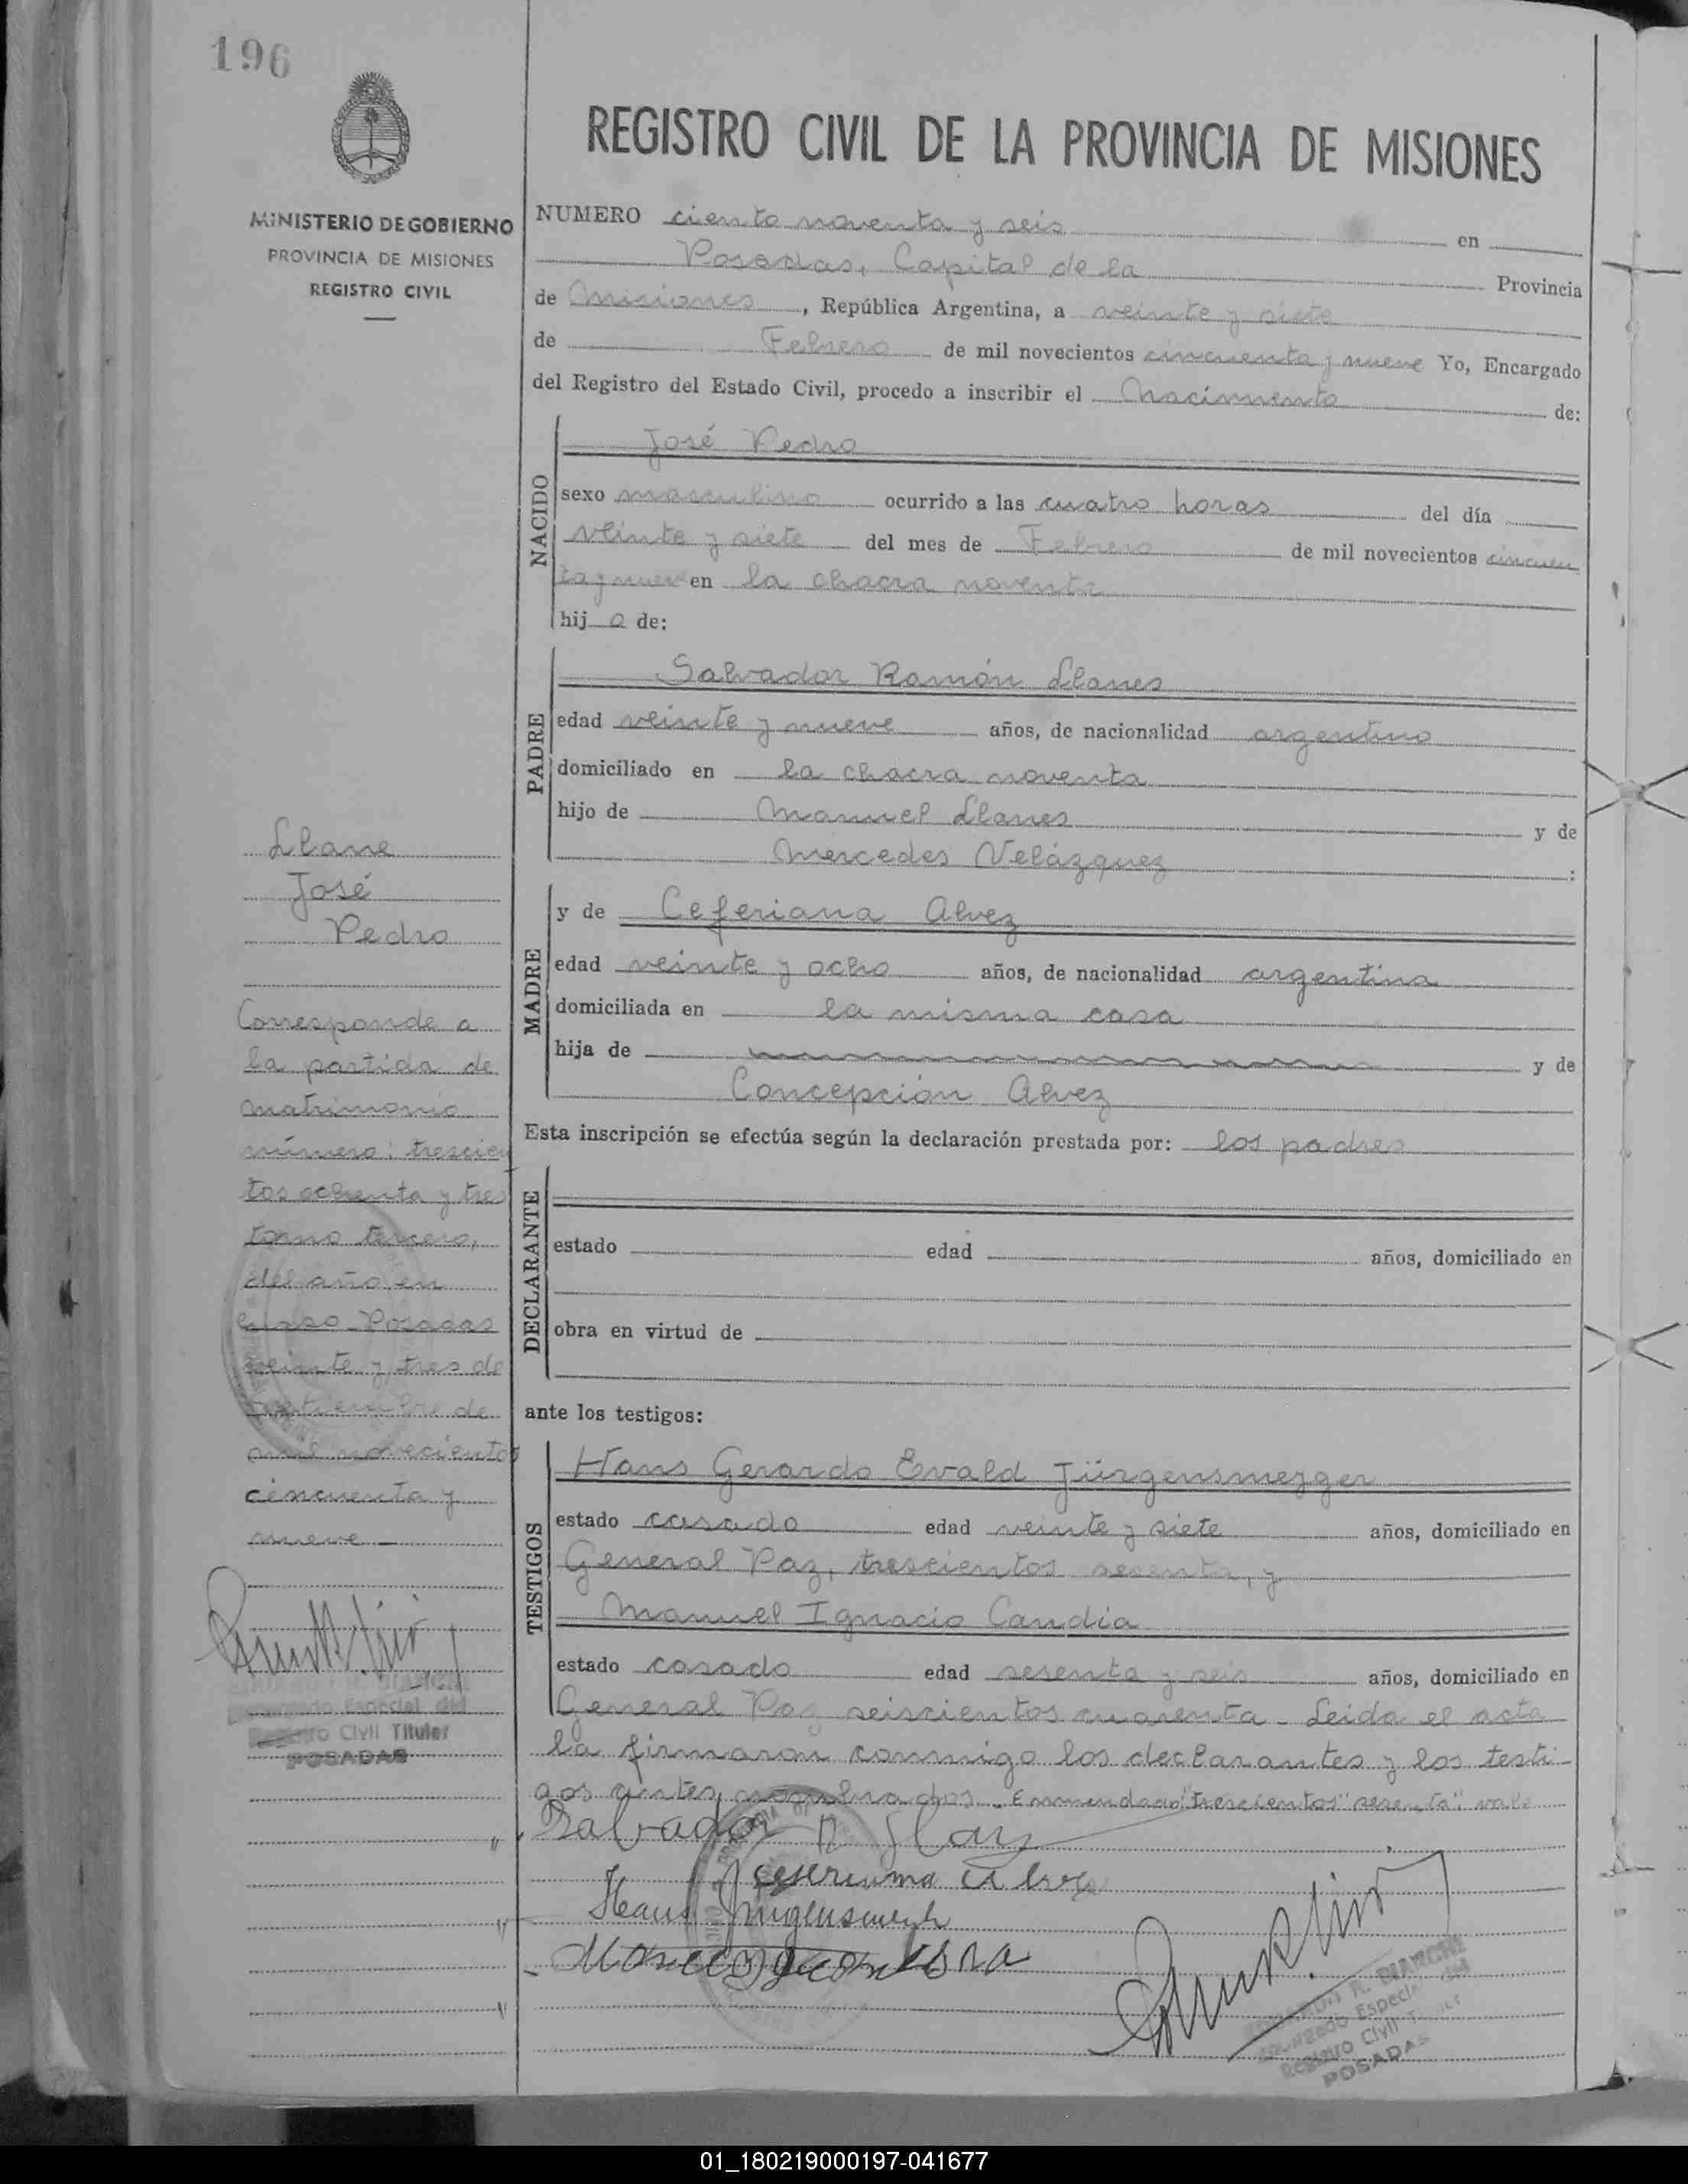 196
MINISTERIO DE GOBIERNO
PROVINCIA DE MISIONES
REGISTRO CIVIL
REGISTRO CIVIL DE LA PROVINCIA DE MISIONES
NUMERO ciento noventa y seis en
Posadas, Capital de la Provincia
de Misiones, República Argentina, a veinte y siete
de Febrero de mil novecientos cincuenta y nueve Yo, Encargado
del Registro del Estado Civil, procedo a inscribir el Nacimiento de:
NACIDO
José Pedro
sexo masculino ocurrido a las cuatro horas del día
veinte y siete del mes de Febrero de mil novecientos cincuen
ta y nueve en la chacra noventa
hijo de:
PADRE
Salvador Ramón Llanes
edad veinte y nueve años, de nacionalidad argentino
domiciliado en la chacra noventa
hijo de Manuel Llanes y de
Mercedes Velázquez:
MADRE
y de Ceferiana Alvez
edad veinte y ocho años, de nacionalidad argentina
domiciliada en la misma casa
hija de y de
Concepción Alvez
Esta inscripción se efectúa según la declaración prestada por: los padres
DECLARANTE
estado edad años, domiciliado en
obra en virtud de
ante los testigos:
TESTIGOS
Hans Gerardo Evald Jürgensmezger
estado casado edad veinte y siete años, domiciliado en
General Paz, trescientos sesenta, y
Manuel Ignacio Candia
estado casado edad sesenta y seis años, domiciliado en
General Paz seiscientos cuarenta - Leida el acta
la firmaron conmigo los declarantes y los testi-
gos antes nombrados. Enmendado "trescientos" "sesenta" vale
Salvador R Llanes
Hans
R. BIANCHI
Encargado Especial del
Registro Civil Titular
POSADAS
Llane
José
Pedro
Corresponde a
la partida de
matrimonio
número: trescien
tos ochenta y tres
tomo tercero,
del año en
curso Posadas
veinte y tres de
septiembre de
mil novecientos
cincuenta y
nueve -
R. BIANCHI
Encargado Especial del
Registro Civil Titular
POSADAS
01_180219000197-041677